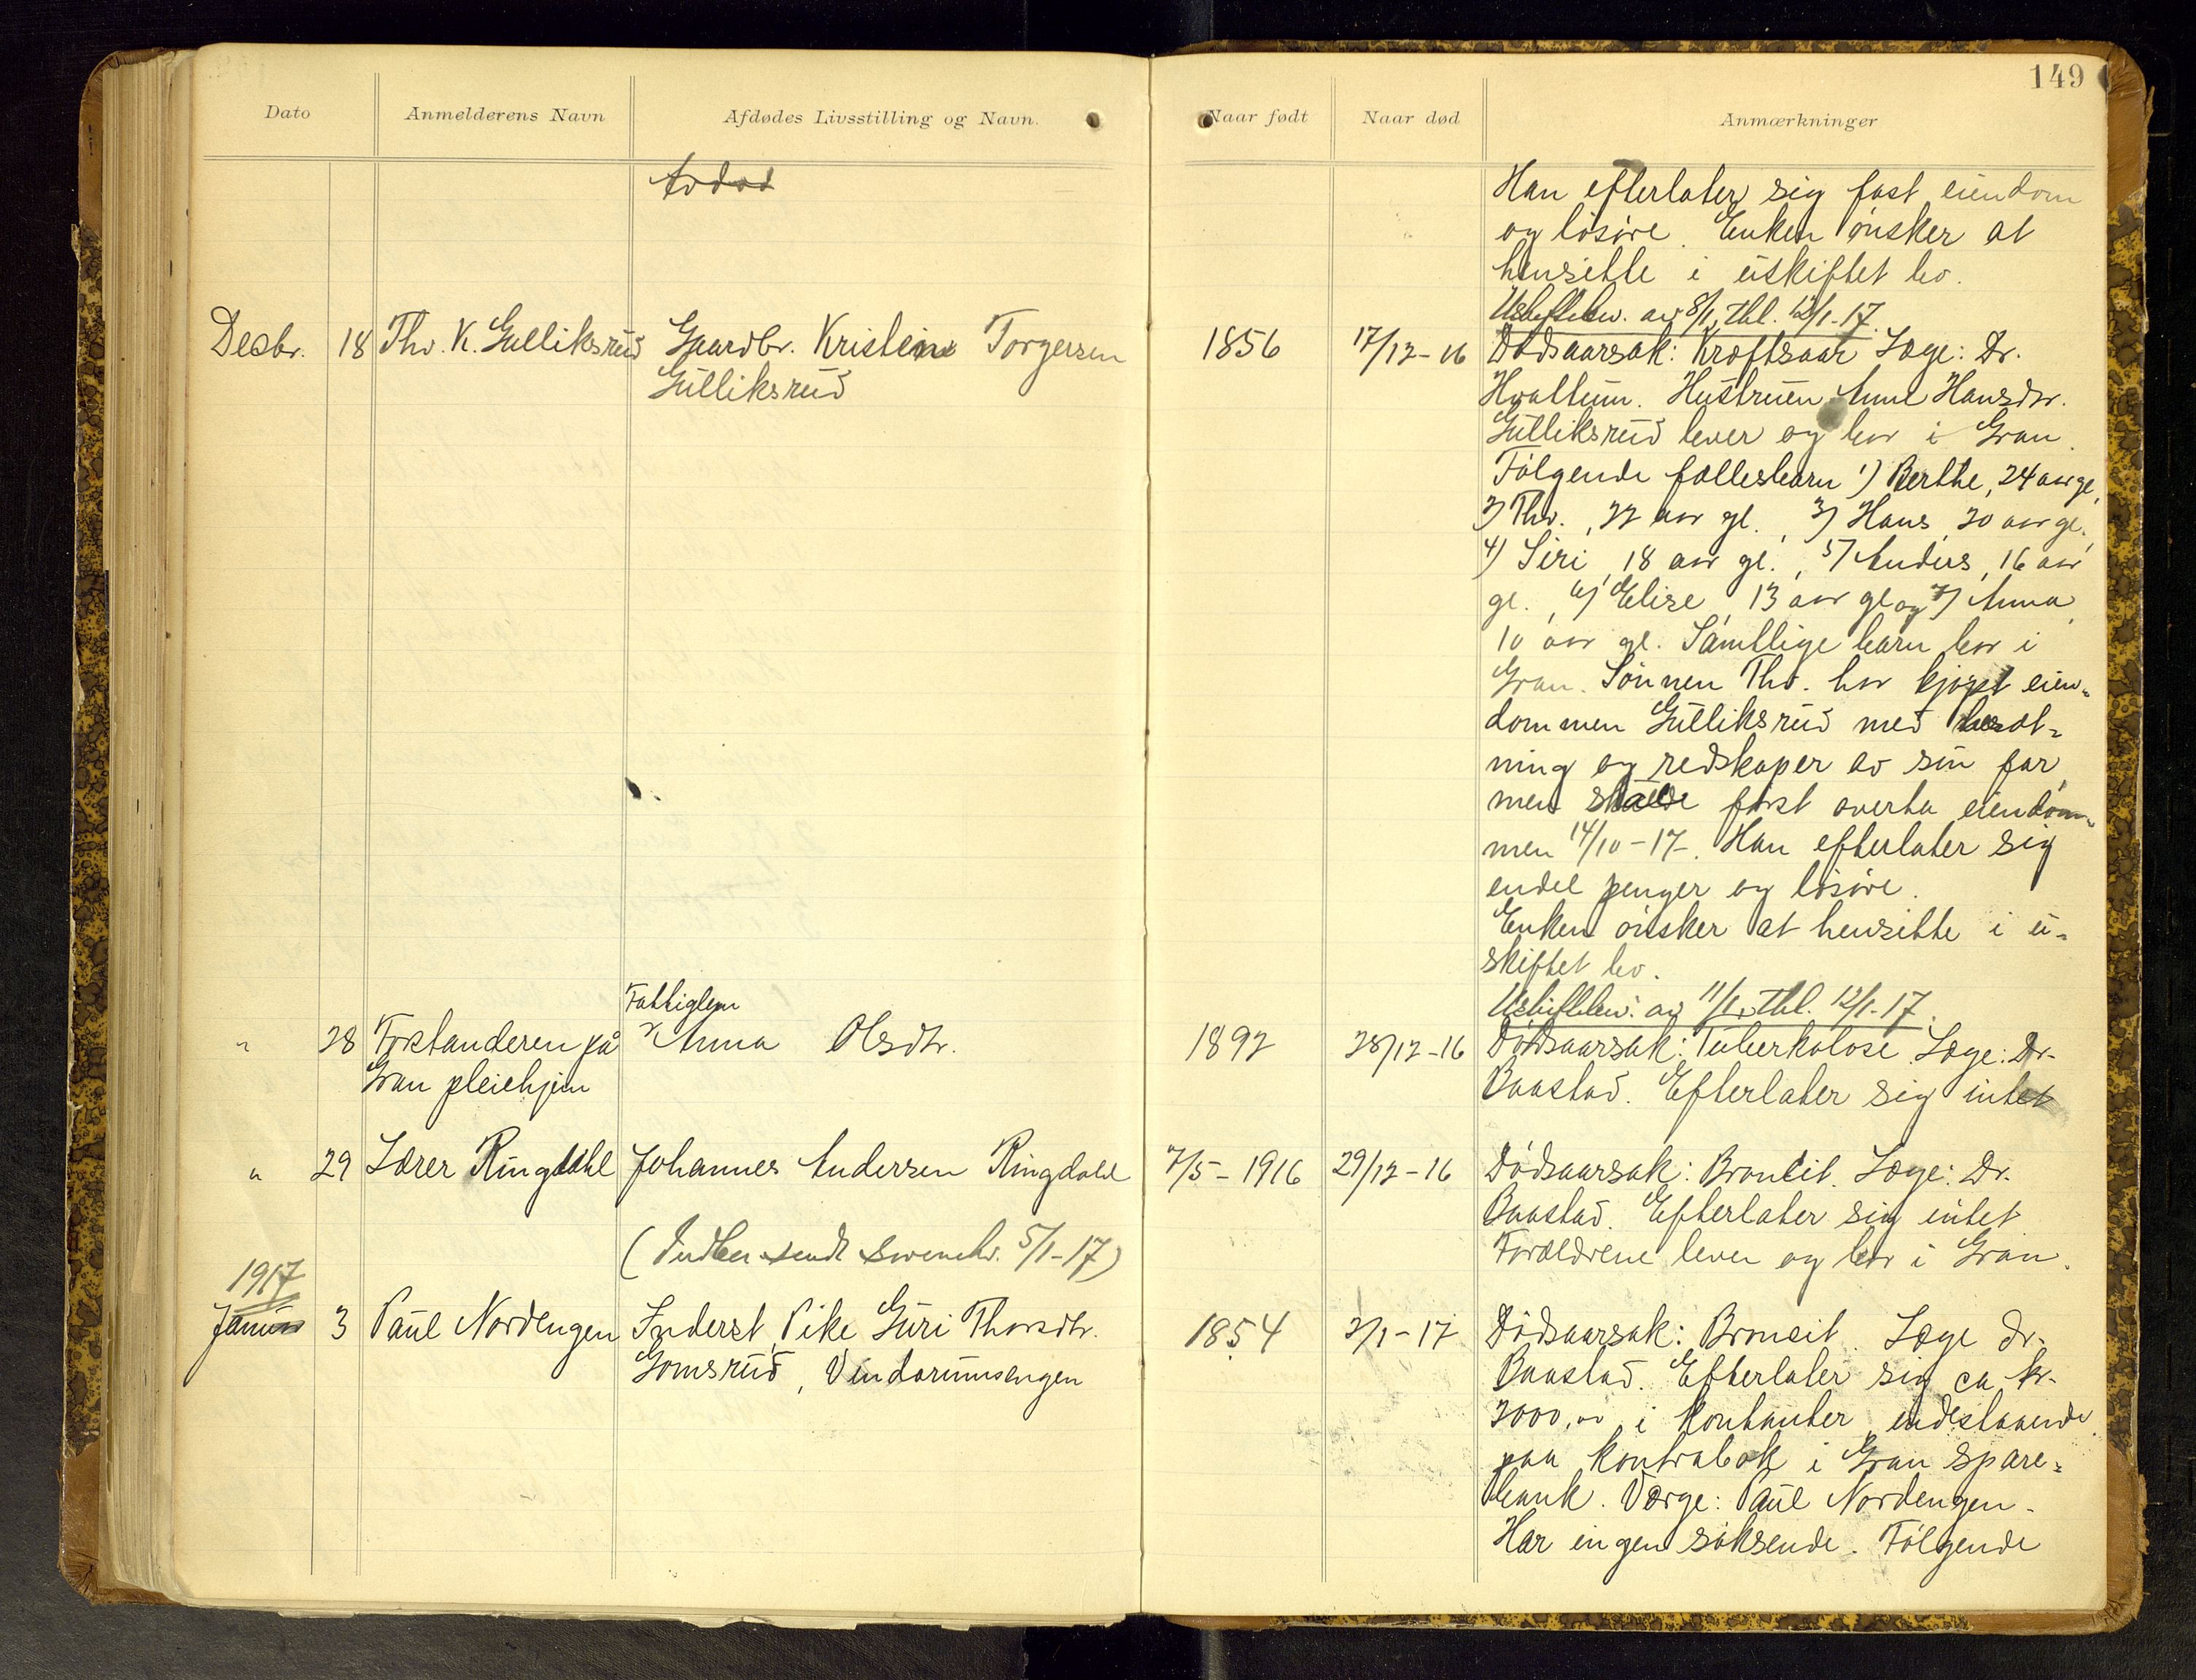 149
Dato
Anmelderens Navn
Afdødes Livsstilling og Navn.
Naar født
Naar død
Anmærkninger
Han efterlater sig fast eiendom
og løsøre. Enken ønsker at
hensitte i uskiftet bo.
Uskiftebev. av 8/1, thl. 12/1-17.
Desbr. 18 Tho. K. Gulliksrud Gaardbr. Kristen Torgersen 1856 17/12-16 Dødsaarsak: Kræftsaar Læge: Dr.
Gulliksrud
Hvattum. Hustruen Anne Hansdtr.
Gulliksrud lever og bor i Gran.
Følgende fællesbarn 1) Berthe, 24 aar gl,
2) Tho., 22 aar gl., 3) Hans, 20 aar gl.,
4) Siri, 18 aar gl., 5) Anders, 16 aar
gl., 6) Elise, 13 aar gl og 7) Anna,
10 aar gl. Samtlige barn bor i
Gran. Sønnen Tho. har kjøpt eien-
dommen Gulliksrud med besæt-
ning og redskaper av sin far,
men skulde først overta eiendom-
men 14/10-17. Han efterlater sig
endel penger og løsøre.
Enken ønsker at hensitte i u-
skiftet bo.
Uskiftebev. av 11/1, thl. 12/1-17.
Fattiglem
" 28 Forstanderen på Anna Olsdtr. 1892 28/12-16 Dødsaarsak: Tuberkulose Læge: Dr.
Gran pleiehjem
Baastad. Efterlater sig intet
" 29 Lærer Ringdahl Johannes Andersen Ringdahl 7/5-1916 29/12-16 Dødsaarsak: Bronkit. Læge: Dr.
Baastad. Efterlater sig intet
(Indber. sendt 5/1-17)
Forældrene lever og bor i Gran.
1917
Januar 3 Paul Nordengen Inderst, Pike Guri Thorsdtr. 1854 2/1-17 Dødsaarsak: Bronkit. Læge dr.
Gomsrud, Vindorumsengen
Baastad. Efterlater sig ca kr.
2000,00 i kontanter, indestaaende
paa kontrabok i Gran spare-
bank. Værge: Paul Nordengen.
Har ingen søksende. Følgende